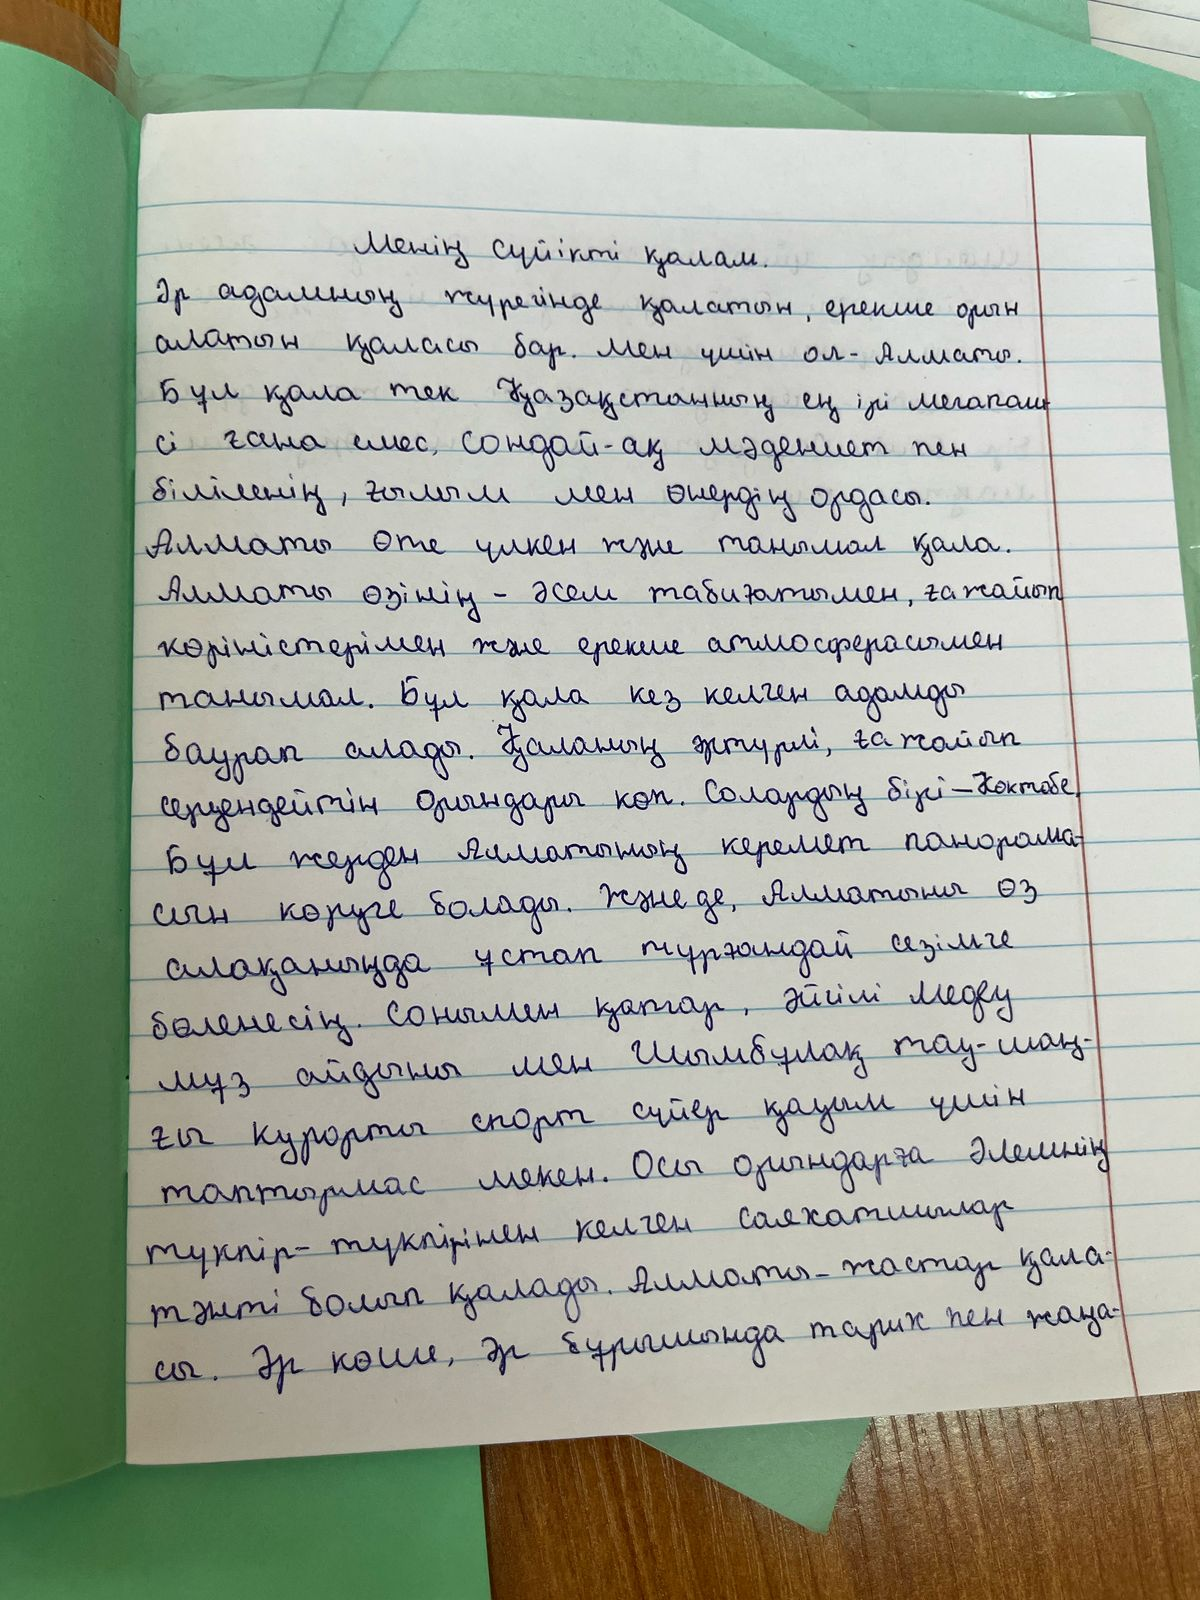 Менің сүйікті қалам.
Әр адамның жүрегінде қалатын, ерекше орын
алатын қаласы бар. Мен үшін ол - Алматы.
Бұл қала тек Қазақстанның ең ірі мегапали
сі ғана емес, сондай-ақ мәдениет пен
білімнің, ғылым мен өнердің ордасы.
Алматы өте үлкен және танымал қала.
Алматы өзінің - әсем табиғатымен, ғажайып
көріністерімен және ерекше атмосферасымен
танымал. Бұл қала кез келген адамды
баурап алады. Қаланың әртүрлі, ғажайып
серуендейтін орындары көп. Солардың бірі - Көктөбе.
Бұл жерден Алматының керемет панорама-
сын көруге болады. Және де, Алматыны өз
алақаныңда ұстап тұрғандай сезімге
бөленесің. Сонымен қатар, әйгілі Медеу
мұз айдыны мен Шымбұлақ тау-шаң-
ғы курорты спорт сүйер қауым үшін
таптырмас мекен. Осы орындарға әлемнің
түкпір-түкпірінен келген саяхатшылар
тәнті болып қалады. Алматы - жастар қала-
сы. Әр көше, әр бұрышында тарих пен жаңа-